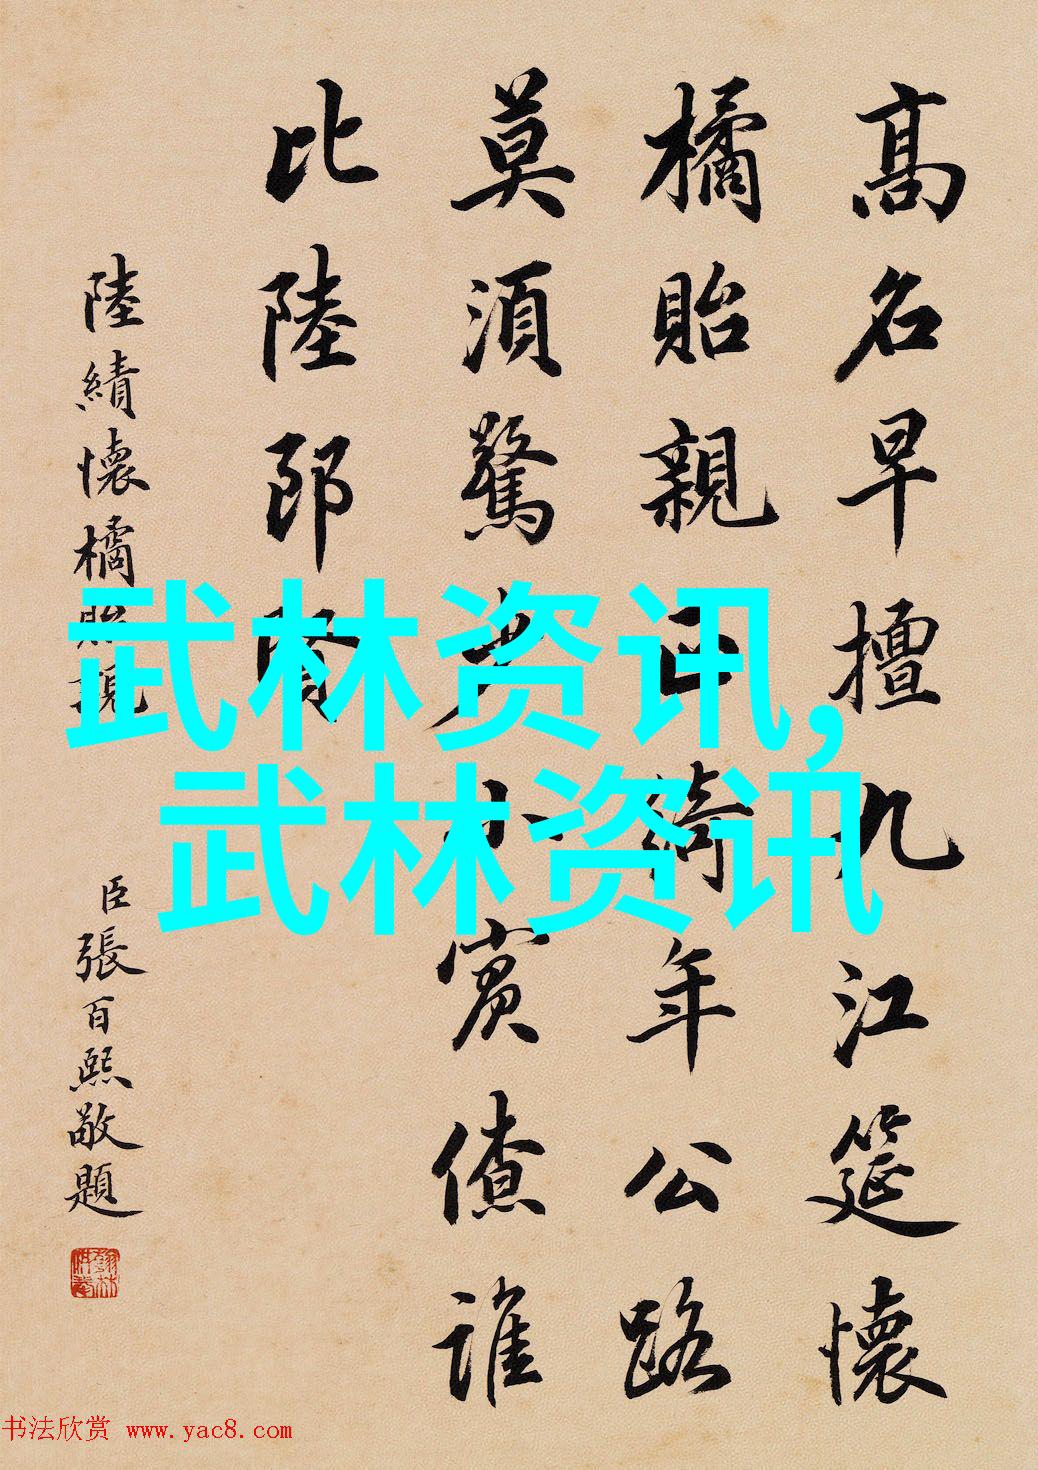 高名早擅九江筵懷
橘貽親正綺年公路
莫須驚少小賓僚誰
比陸郎賢
陸績懷橘貽親
臣張百熙敬題
武林资讯,
武林资讯
书法欣赏 www.yac8.com